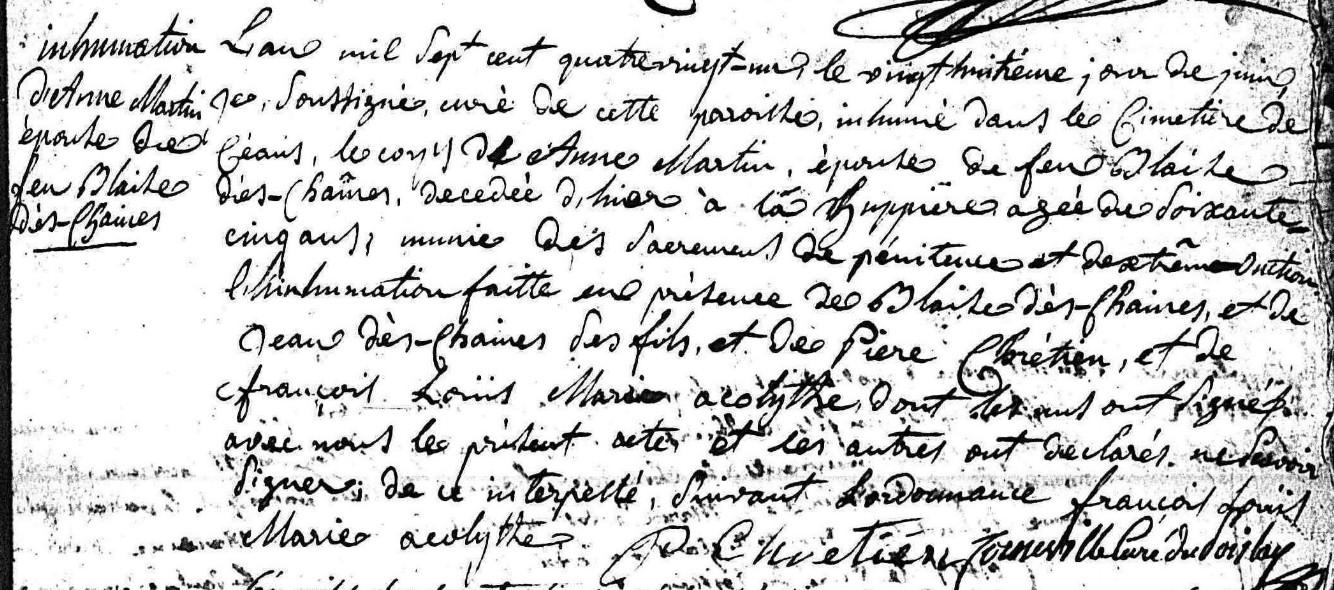 inhumation
d'Anne Martin
épouse de
feu Blaise
dès-Chaines
L'an mil sept cent quatrevingt-un, le vingt huitiéme jour de juin,
je, soussigné, curé de cette paroisse, inhumé dans le Cimetière de
Céans, le corps d'Anne Martin, épouse de feu Blaise
dès-Chaînes, decedée d'hier à la huppière agée de soixante-
cinq ans; munie des sacremens de pénitence et dextrême-onction
l'hinhumation faitte en présence de Blaise dès-Chaines, et de
Jean dès-Chaines ses fils, et de Piere Chrétien, et de
françois Loüis Marie acolythe, dont les uns ont signés
avec nous le présent acte et les autres ont declarés ne scavoir
signer; de ce interpellé, suivant L'ordonnance françois Loüis
Marie acolythe P Chretien Curé du